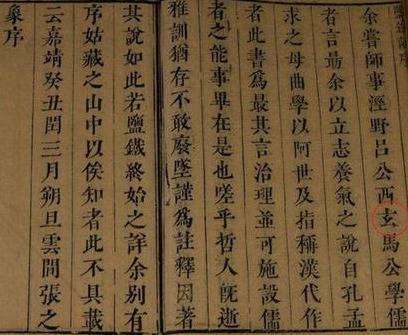 余嘗師事涇野呂公西玄馬公學儒
者言勗余以立志養氣之說自孔孟
求之毋曲學以阿世及指稱漢代作
者此書為最其言治理並可施設儒
者之能事畢在是也嗟乎哲人既逝
雅訓猶存不敢廢墜謹為註釋因著
其說如此若鹽鐵終始之詳余別有
序姑藏之山中以俟知者此不具載
云嘉靖癸丑閏三月朔旦雲間張之
象序